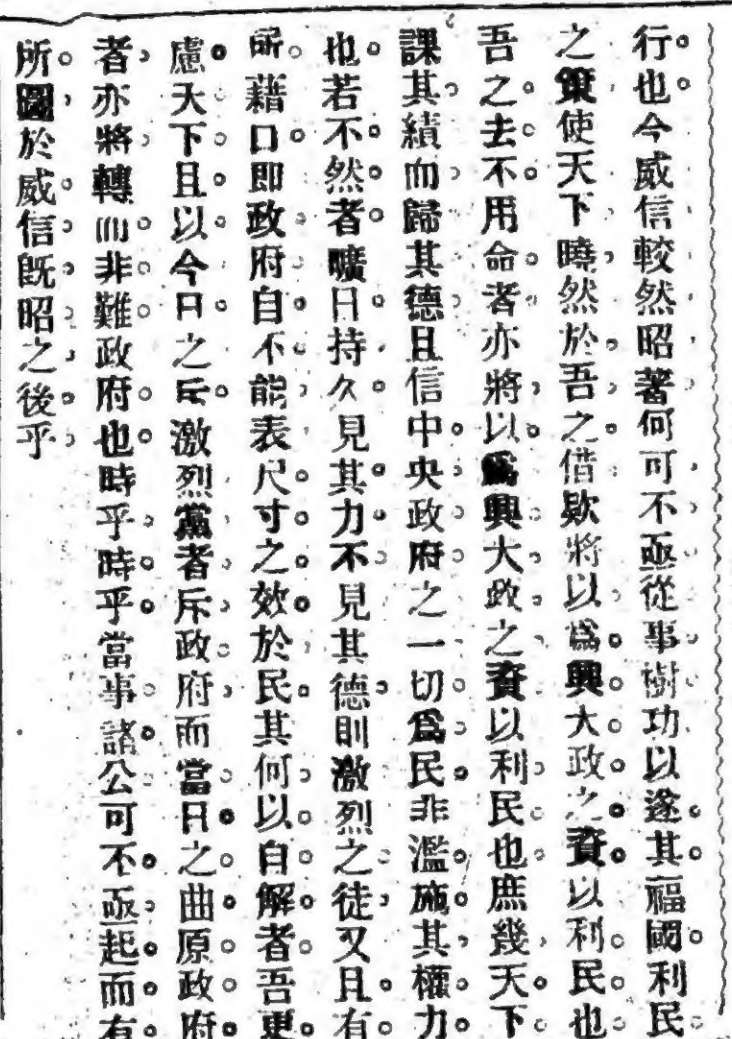 行也今威信較然昭著何可不亟從事樹功以遂其福國利民
之策使天下曉然於吾之借欵將以爲興大政之資以利民也
吾之去不用命者亦將以爲興大政之資以利民也庶幾天下
課其績而歸其德且信中央政府之一切爲民非濫施其權力
也若不然者曠日持久見其力不見其德則激烈之徒又且有
所藉口即政府自不能表尺寸之效於民其何以自解者吾更
慮天下且以今日之斥激烈黨者斥政府而當日之曲原政府
者亦將轉而非難政府也時乎時乎當事諸公可不亟起而有
所圖於威信既昭之後乎